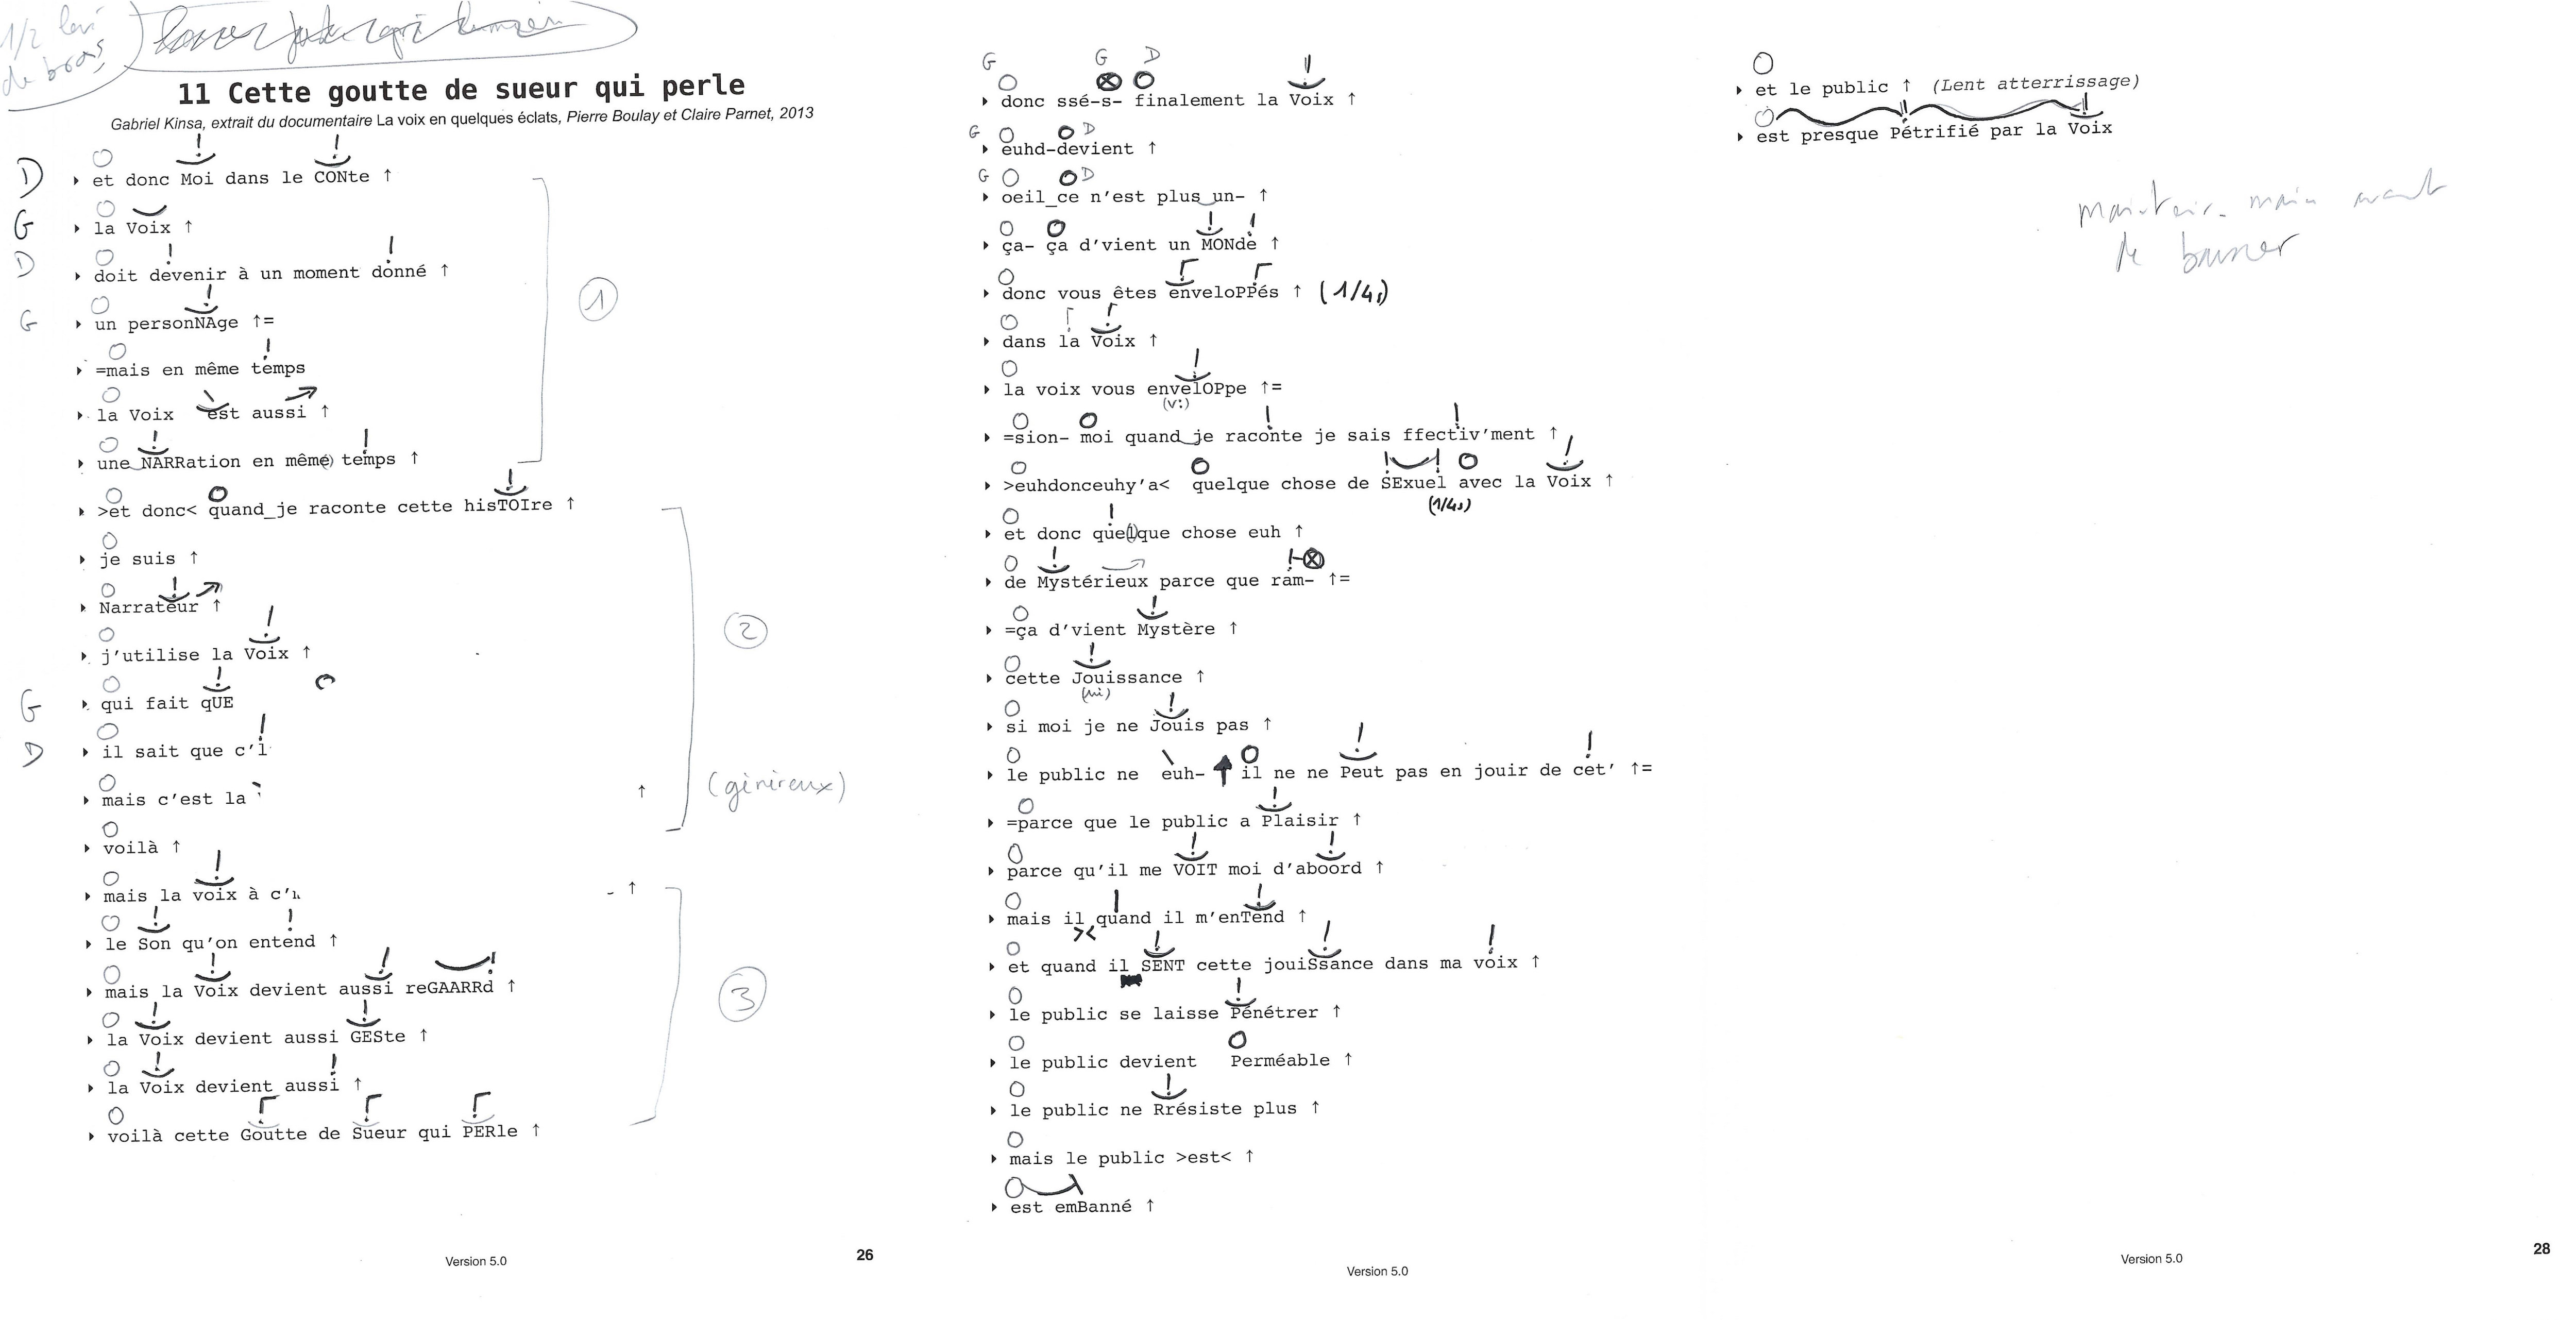 1/2 levé
de bras
11 Cette goutte de sueur qui perle
Gabriel Kinsa, extrait du documentaire La voix en quelques éclats, Pierre Boulay et Claire Parnet, 2013
D ‣ et donc Moi dans le CONte ↑
G ‣ la Voix ↑
D ‣ doit devenir à un moment donné ↑
G ‣ un personNAge ↑=
‣ =mais en même temps
‣ la Voix est aussi ↑
‣ une_NARRation en même) temps ↑
①
‣ >et donc< quand_je raconte cette hisTOIre ↑
‣ je suis ↑
‣ Narrateur ↑
‣ j'utilise la Voix ↑
G ‣ qui fait qUE
D ‣ il sait que c'
‣ mais c'est la ↑
‣ voilà ↑
②
(généreux)
‣ mais la voix à c' - ↑
‣ le Son qu'on entend ↑
‣ mais la Voix devient aussi reGAARRd ↑
‣ la Voix devient aussi GESte ↑
‣ la Voix devient aussi ↑
‣ voilà cette Goutte de Sueur qui PERle ↑
③
Version 5.0
26
G G D
‣ donc ssé-s- finalement la Voix ↑
G D
‣ euhd-devient ↑
G D
‣ oeil_ce n'est plus_un- ↑
‣ ça- ça d'vient un MONde ↑
‣ donc vous êtes enveloPPés ↑ (1/4s)
‣ dans la Voix ↑
‣ la voix vous envelOPpe ↑=
(v:)
‣ =sion- moi quand_je raconte je sais ffectiv'ment ↑
‣ >euhdonceuhy'a< quelque chose de SExuel avec la Voix ↑
(1/4s)
‣ et donc que(l)que chose euh ↑
‣ de Mystérieux parce que ram- ↑=
‣ =ça d'vient Mystère ↑
‣ cette Jouissance ↑
‣ si moi je ne Jouis pas ↑
‣ le public ne euh- ↑ il ne ne Peut pas en jouir de cet' ↑=
‣ =parce que le public a Plaisir ↑
‣ parce qu'il me VOIT moi d'aboord ↑
‣ mais il quand il m'enTend ↑
><
‣ et quand il SENT cette jouiSsance dans ma voix ↑
‣ le public se laisse Pénétrer ↑
‣ le public devient Perméable ↑
‣ le public ne Rrésiste plus ↑
‣ mais le public >est< ↑
‣ est emBanné ↑
Version 5.0
‣ et le public ↑ (Lent atterrissage)
‣ est presque Pétrifié par la Voix
main avant
de
Version 5.0
28